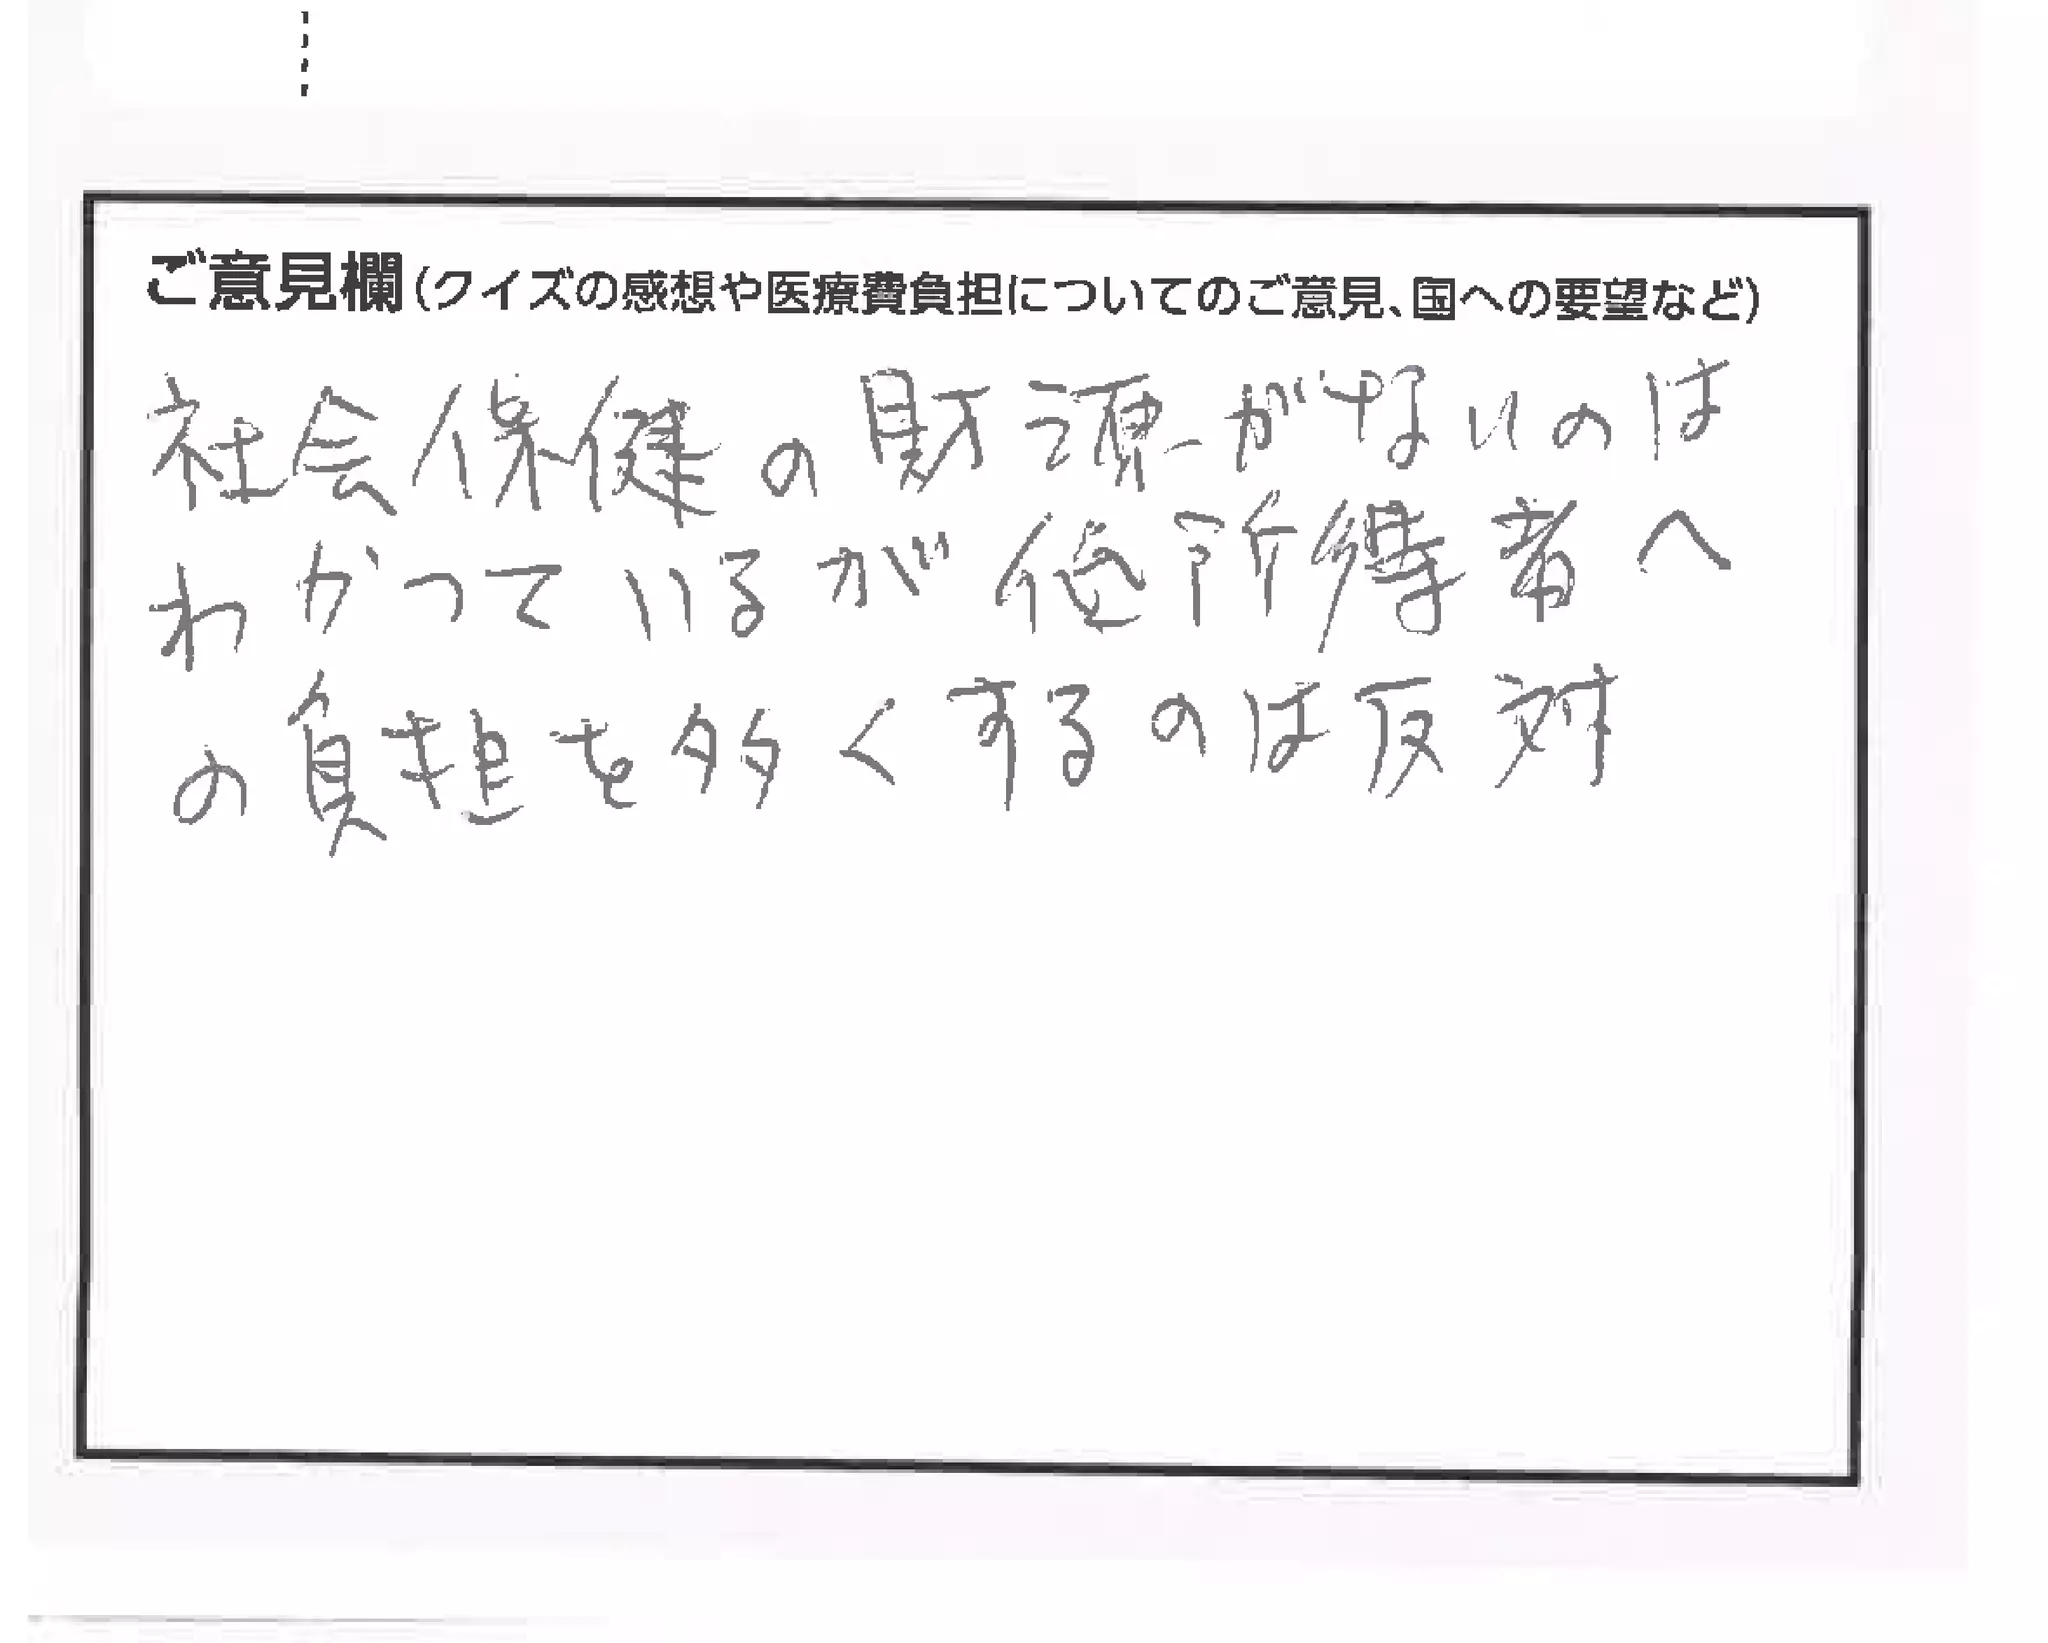 ご意見欄(クイズの感想や医療費負担についてのご意見、国への要望など)
社会保健の財源がないのは
わかっているが低所得者へ
の負担を多くするのは反対